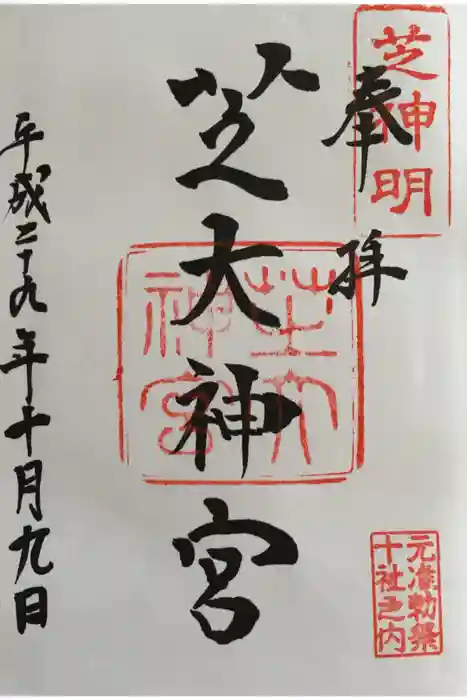 芝神明
奉拝
元准勅祭
十社之内
芝大神宮
芝大
神宮
平成二十九年十月九日